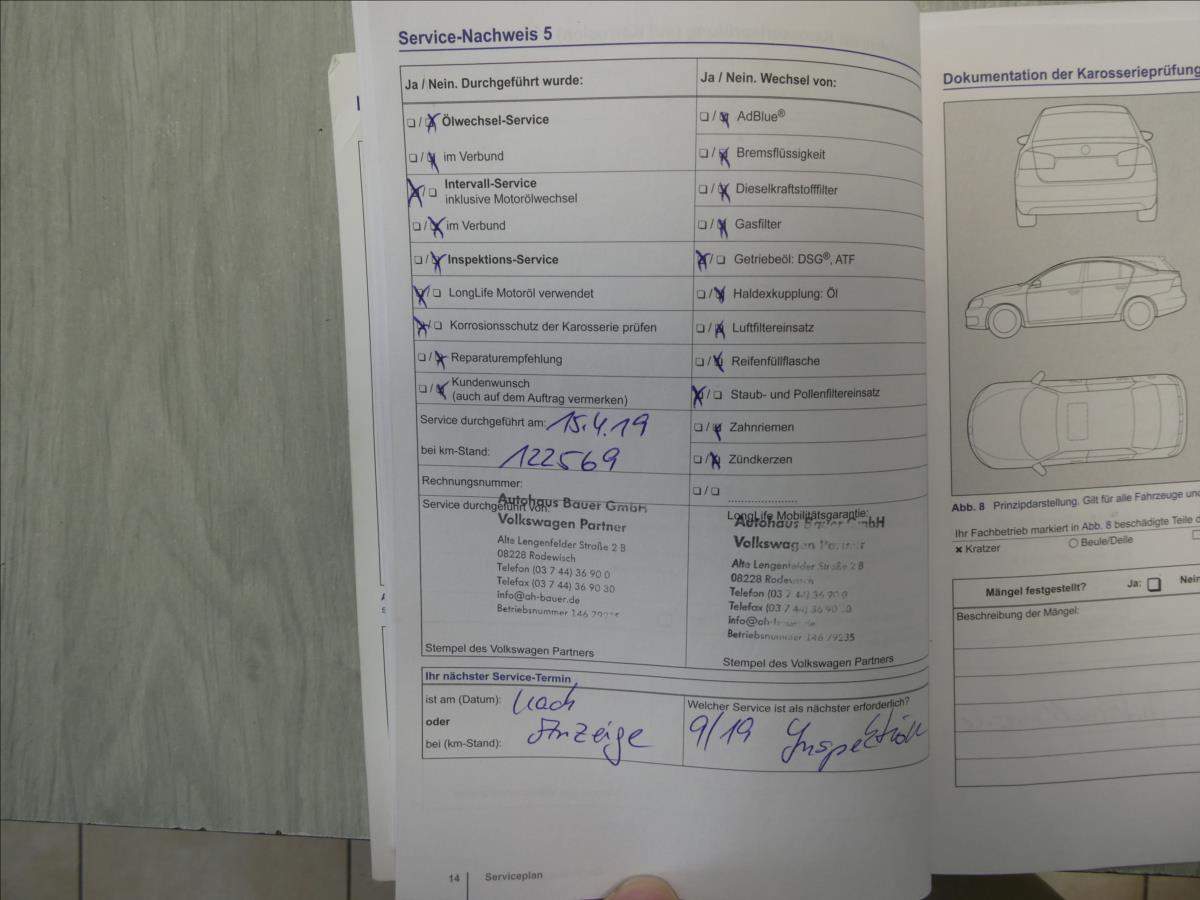 Service-Nachweis 5
Ja / Nein. Durchgeführt wurde:
Ölwechsel-Service
im Verbund
Intervall-Service
inklusive Motorölwechsel
im Verbund
Inspektions-Service
LongLife Motoröl verwendet
Korrosionsschutz der Karosserie prüfen
Reparaturempfehlung
Kundenwunsch
(auch auf dem Auftrag vermerken)
Service durchgeführt am: 15.4.19
bei km-Stand: 122569
Rechnungsnummer:
Service durchgeführt von:
Autohaus Bauer GmbH
Volkswagen Partner
Alte Lengenfelder Straße 2 B
08228 Rodewisch
Telefon (03 7 44) 36 90 0
Telefax (03 7 44) 36 90 30
info@ah-bauer.de
Betriebsnummer 146 79235
Stempel des Volkswagen Partners
Ja / Nein. Wechsel von:
AdBlue®
Bremsflüssigkeit
Dieselkraftstofffilter
Gasfilter
Getriebeöl: DSG®, ATF
Haldexkupplung: Öl
Luftfiltereinsatz
Reifenfüllflasche
Staub- und Pollenfiltereinsatz
Zahnriemen
Zündkerzen
LongLife Mobilitätsgarantie:
Autohaus Bauer GmbH
Volkswagen Partner
Alte Lengenfelder Straße 2 B
08228 Rodewisch
Telefon (03 7 44) 36 90 0
Telefax (03 7 44) 36 90 30
info@ah-bauer.de
Betriebsnummer 146 79235
Stempel des Volkswagen Partners
Ihr nächster Service-Termin
ist am (Datum): Nach
oder
bei (km-Stand): Anzeige
Welcher Service ist als nächster erforderlich?
9/19 Inspektion
14 Serviceplan
Dokumentation der Karosserieprüfung
Abb. 8 Prinzipdarstellung. Gilt für alle Fahrzeuge
Ihr Fachbetrieb markiert in Abb. 8 beschädigte Teile
Kratzer
Beule/Delle
Mängel festgestellt? Ja: Nein
Beschreibung der Mängel: